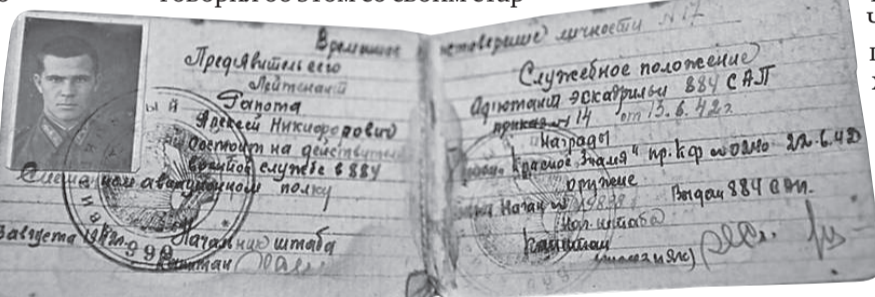 говорил об этом со своим стар
Временное удостоверение личности N 17
Предявитель сего
Лейтенант
Гапота
Алексей Никифорович
состоит на действител
военной службе в 884
Смешанном авиационном полку
августа 1942г.
Начальник штаба
Капитан
Служебное положение
Адютант эскадрильи 884 САП
приказ N 14 от 13.6.42г
Награды
"Красное Знамя" пр. КФ N 02 22.6.42
оружие
Наган N 19898 Выдан 884 САП.
Нач. штаба
Капитан